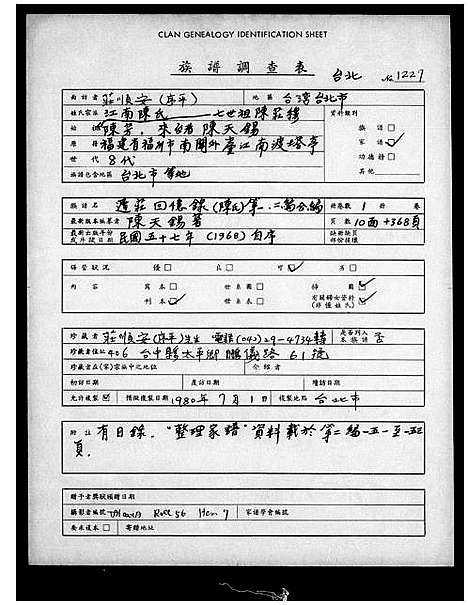 CLAN GENEALOGY IDENTIFICATION SHEET
族譜調查表 台北 № 1227
面訪者 莊順安(序平) 地區 台灣台北市
姓氏宗派 江南陳氏 七世祖陳莊 資料類別
始祖 陳芳, 來台者 陳天錫 族譜 □
原籍 福建省福州市南關外臺江南渡塔亭 家譜 ☑
世代 8代 功德榜 □
族譜包含地區 台北市等地 其他
族譜名 遲莊回憶錄(陳氏)第一.二篇合編 冊卷數 1 冊 卷
最新版本編纂者 陳天錫著 頁數 10面+368頁
最新出版年份 缺冊缺頁
或序跋日期 民國五十七年 (1968) 自序 部份採樣
保管狀況 優 □ 良 □ 可 ☑ 劣 □
內容 寫本 □ 世系圖 □ 排圖 ☑
刊本 ☑ 世系表 □ 有關婦女資料 ☑
(非僅姓氏)
珍藏者 莊順安(序平)先生 電話(042)29-4734轉 是否列入本族譜 否
珍藏者住址 406 台中縣太平鄉鵬儀路 61號
珍藏者在(家)宗族中之地位 介紹者
初訪日期 應訪日期 續訪日期
允許複製 ☑ 預擬複製日期 1980年7月1日 複製地點 台北市
附註 有目錄. "整理家譜"資料載於第二編-五一至-五三
頁.
贈予者獎狀頒贈日期
攝影者編號 Roll 56 Item 7 家譜學會編號
要求複本 □ 寄贈地址